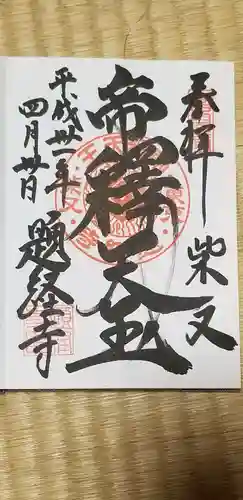 奉拝
柴又
帝釋天王
平成卅一年
四月廿日
題経寺